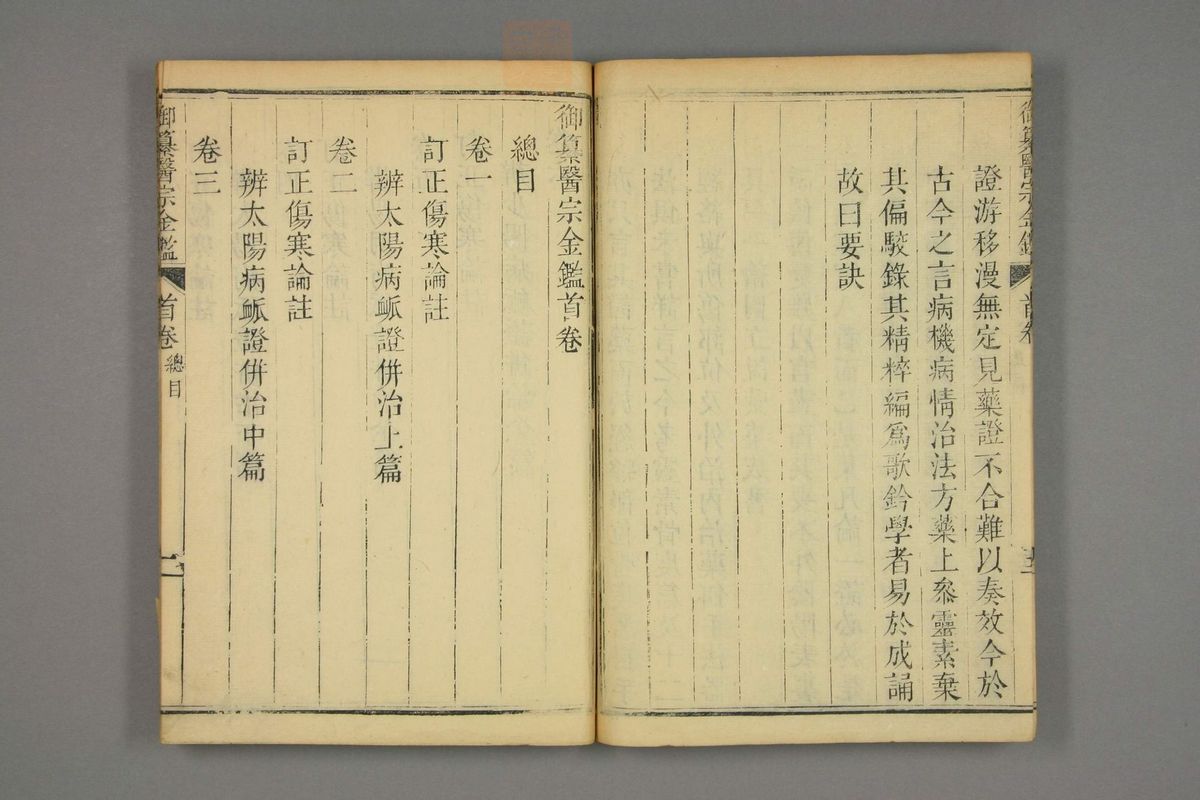 證游移漫無定見藥證不合難以奏效今於
古今之言病機病情治法方藥上叅靈素棄
其偏駁錄其精粹編爲歌鈐學者易於成誦
故曰要訣
御纂醫宗金鑑
首卷
御纂醫宗金鑑首卷
總目
卷一
訂正傷寒論註
辨太陽病脈證併治上篇
卷二
訂正傷寒論註
辨太陽病脈證併治中篇
卷三
御纂醫宗金鑑
首卷
總目
一